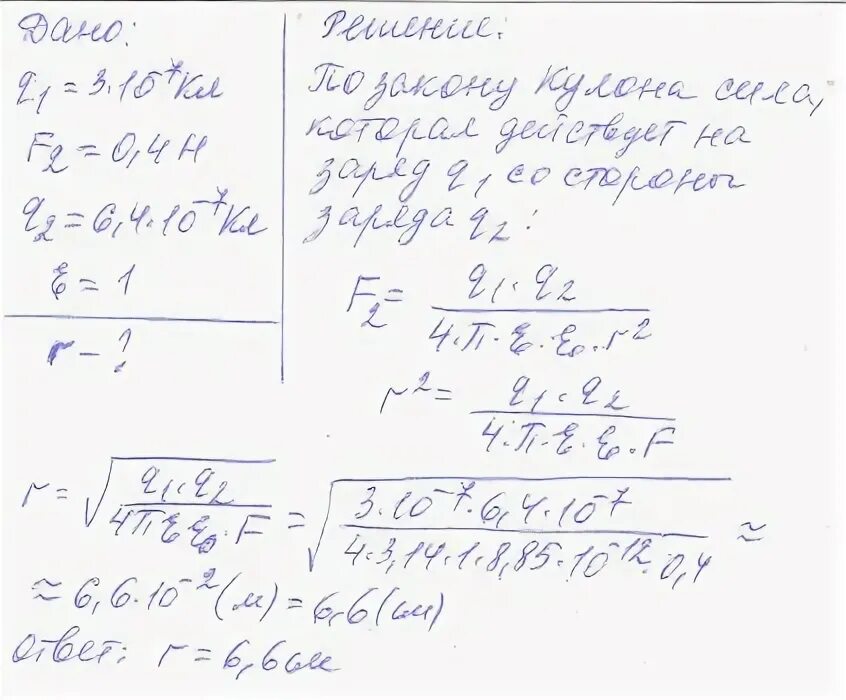 Дано:
q₁ = 3·10⁻⁷ Кл
F₂ = 0,4 Н
q₂ = 6,4·10⁻⁷ Кл
ε = 1
r - ?
Решение:
По закону Кулона сила,
которая действует на
заряд q₁ со стороны
заряда q₂:
F₂ = q₁·q₂ / 4·π·ε·ε₀·r²
r² = q₁·q₂ / 4·π·ε·ε₀·F
r = √(q₁·q₂ / 4πεε₀·F) = √(3·10⁻⁷·6,4·10⁻⁷ / 4·3,14·1·8,85·10⁻¹²·0,4) ≈
≈ 6,6·10⁻² (м) = 6,6 (см)
ответ: r = 6,6 см